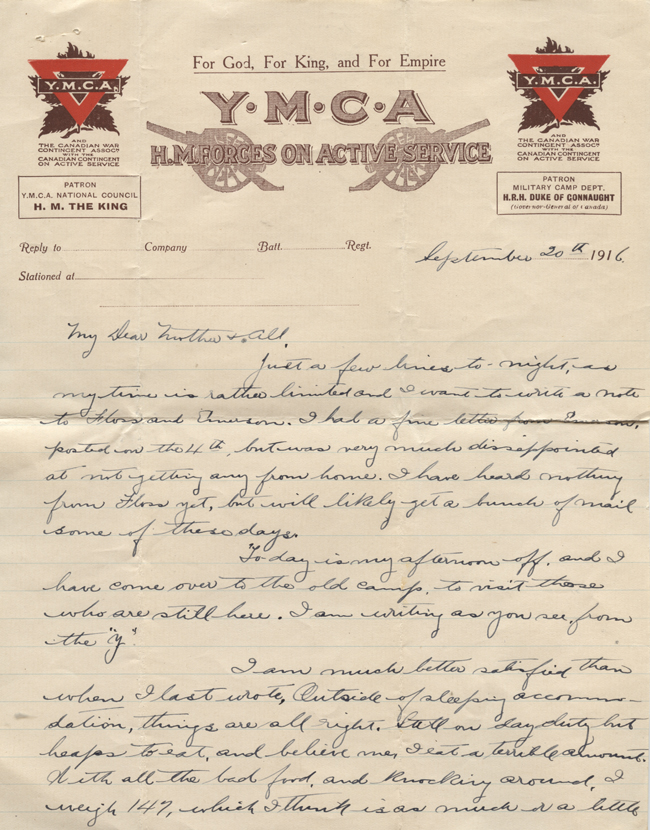 For God, For King, and For Empire
Y·M·C·A
H.M. FORCES ON ACTIVE SERVICE
Y.M.C.A.
AND
THE CANADIAN WAR
CONTINGENT ASSOCN
WITH THE
CANADIAN CONTINGENT
ON ACTIVE SERVICE
PATRON
Y.M.C.A. NATIONAL COUNCIL
H. M. THE KING
Y.M.C.A.
AND
THE CANADIAN WAR
CONTINGENT ASSOCN
WITH THE
CANADIAN CONTINGENT
ON ACTIVE SERVICE
PATRON
MILITARY CAMP DEPT.
H.R.H. DUKE OF CONNAUGHT
(Governor-General of Canada)
Reply to Company Batt. Regt.
Stationed at
September 20th 1916.
My Dear Mother & All,
Just a few lines to-night, as
my time is rather limited and I want to write a note
to Floss and Emerson. I had a fine letter from Emerson,
posted on the 4th, but was very much dissappointed
at not getting any from home. I have heard nothing
from Floss yet, but will likely get a bunch of mail
some of these days.
To day is my afternoon off, and I
have come over to the old camp, to visit those
who are still here. I am writing as you see, from
the "Y".
I am much better satisfied than
when I last wrote, Outside of sleeping accommo-
dation, things are all right. Still on day duty but
heaps to eat, and believe me, I eat a terrible amount.
With all the bad food, and knocking around, I
weigh 147, which I think is as much or a little